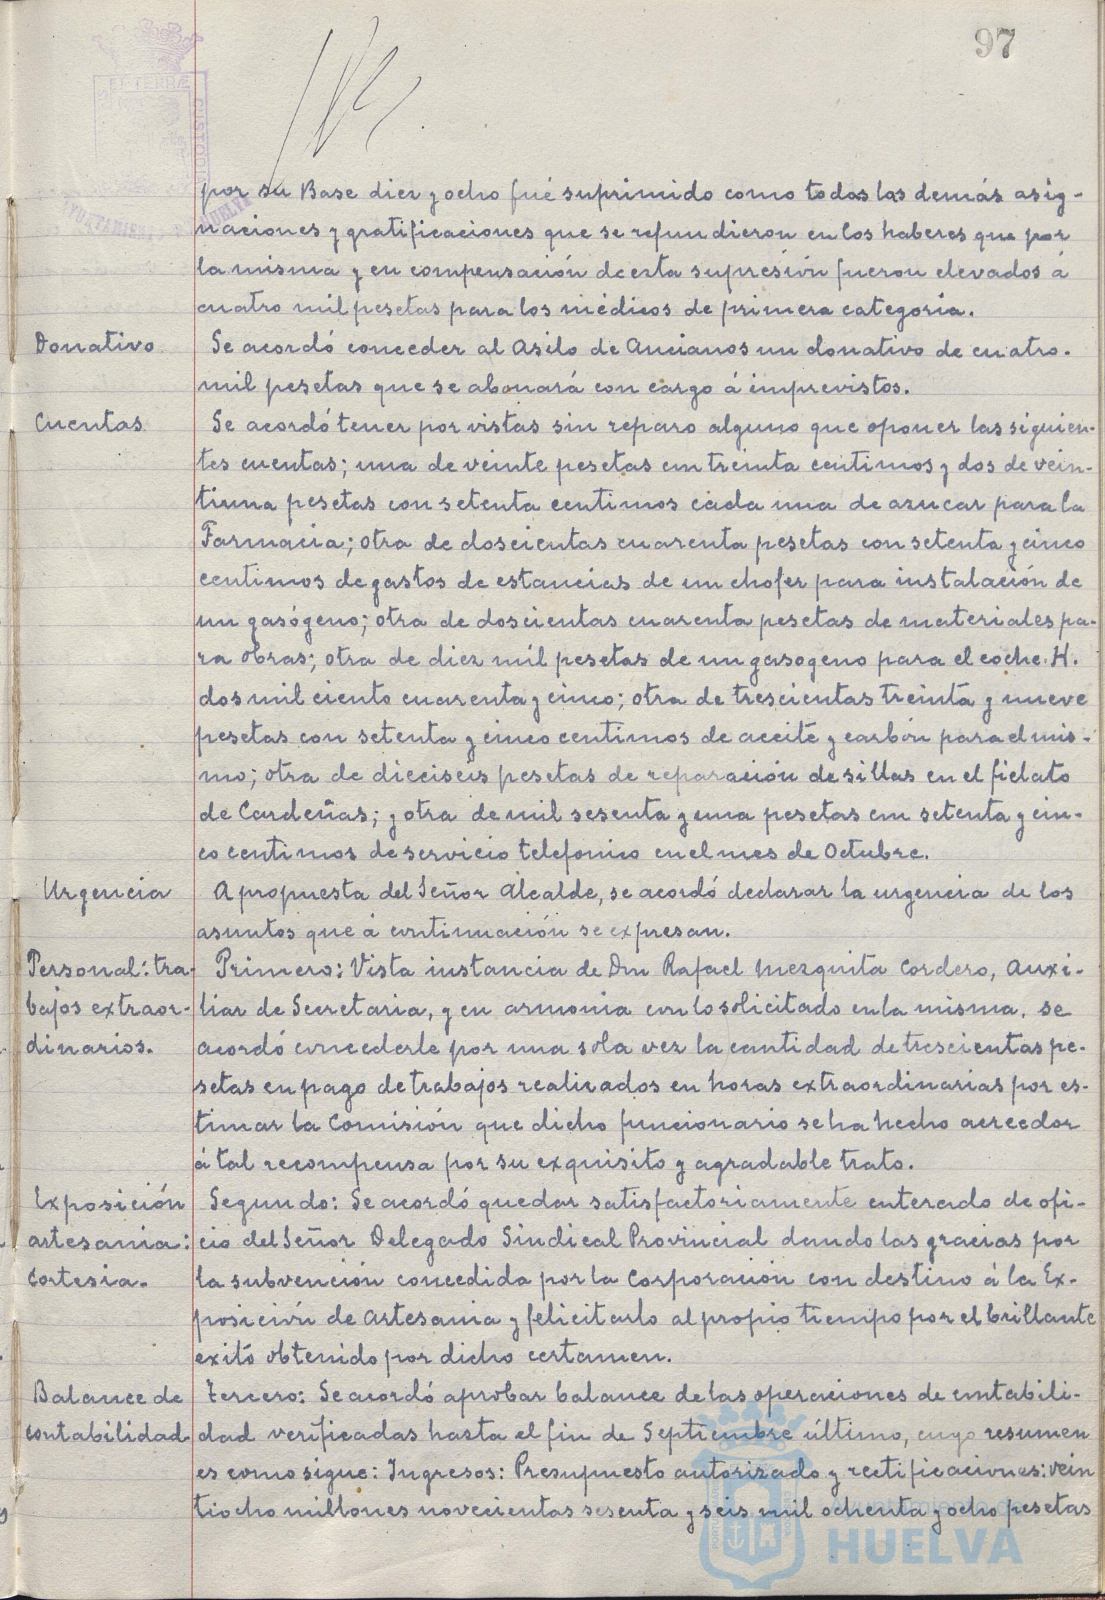 97
ET TERRÆ
CUSTODIA
AYUNTAMIENTO HUELVA
por su Base diez y ocho fué suprimido como todas las demás asig-
naciones y gratificaciones que se refundieron en los haberes que por
la misma y en compensación de esta supresión fueron elevados á
cuatro mil pesetas para los médicos de primera categoria.
Donativo
Se acordó conceder al Asilo de Ancianos un donativo de cuatro.
mil pesetas que se abonará con cargo á imprevistos.
Cuentas
Se acordó tener por vistas sin reparo alguno que oponer las siguien-
tes cuentas; una de veinte pesetas con treinta centimos y dos de vein-
tiuna pesetas con setenta centimos cada una de azucar para la
Farmacia; otra de doscientas cuarenta pesetas con setenta y cinco
centimos de gastos de estancias de un chofer para instalación de
un gasógeno; otra de doscientas cuarenta pesetas de materiales pa-
ra obras; otra de diez mil pesetas de un gasogeno para el coche. H.
dos mil ciento cuarenta y cinco; otra de trescientas treinta y nueve
pesetas con setenta y cinco centimos de aceite y carbón para el mis-
mo; otra de dieciseis pesetas de reparación de sillas en el fielato
de Cardeñas; y otra de mil sesenta y una pesetas con setenta y cin-
co centimos de servicio telefonico en el mes de Octubre.
Urgencia
A propuesta del Señor Alcalde, se acordó declarar la urgencia de los
asuntos que á continuación se expresan.
Personal: tra-
bajos extraor-
dinarios.
Primero: Vista instancia de Don Rafael Mezquita Cordero, Auxi-
liar de Secretaria, y en armonia con lo solicitado en la misma, se
acordó concederle por una sola vez la cantidad de trescientas pe-
setas en pago de trabajos realizados en horas extraordinarias por es-
timar la Comisión que dicho funcionario se ha hecho acreedor
á tal recompensa por su exquisito y agradable trato.
Exposición
artesania:
Cortesia.
Segundo: Se acordó quedar satisfactoriamente enterado de ofi-
cio del Señor Delegado Sindical Provincial dando las gracias por
la subvención concedida por la Corporación con destino á la Ex-
posición de Artesania y felicitarlo al propio tiempo por el brillante
exitó obtenido por dicho certamen.
Balance de
contabilidad
Tercero: Se acordó aprobar balance de las operaciones de contabili-
dad verificadas hasta el fin de Septiembre último, cuyo resumen
es como sigue: Ingresos: Presupuesto autorizado y rectificaciones: vein
tiocho millones novecientas sesenta y seis mil ochenta y ocho pesetas
Ayuntamiento de
HUELVA